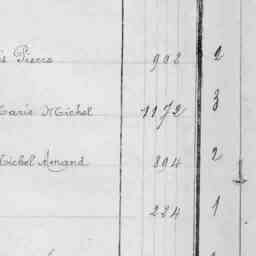 Pierre 902 2
Marie Michel 1172 3
Michel Amand 894 2
224 1